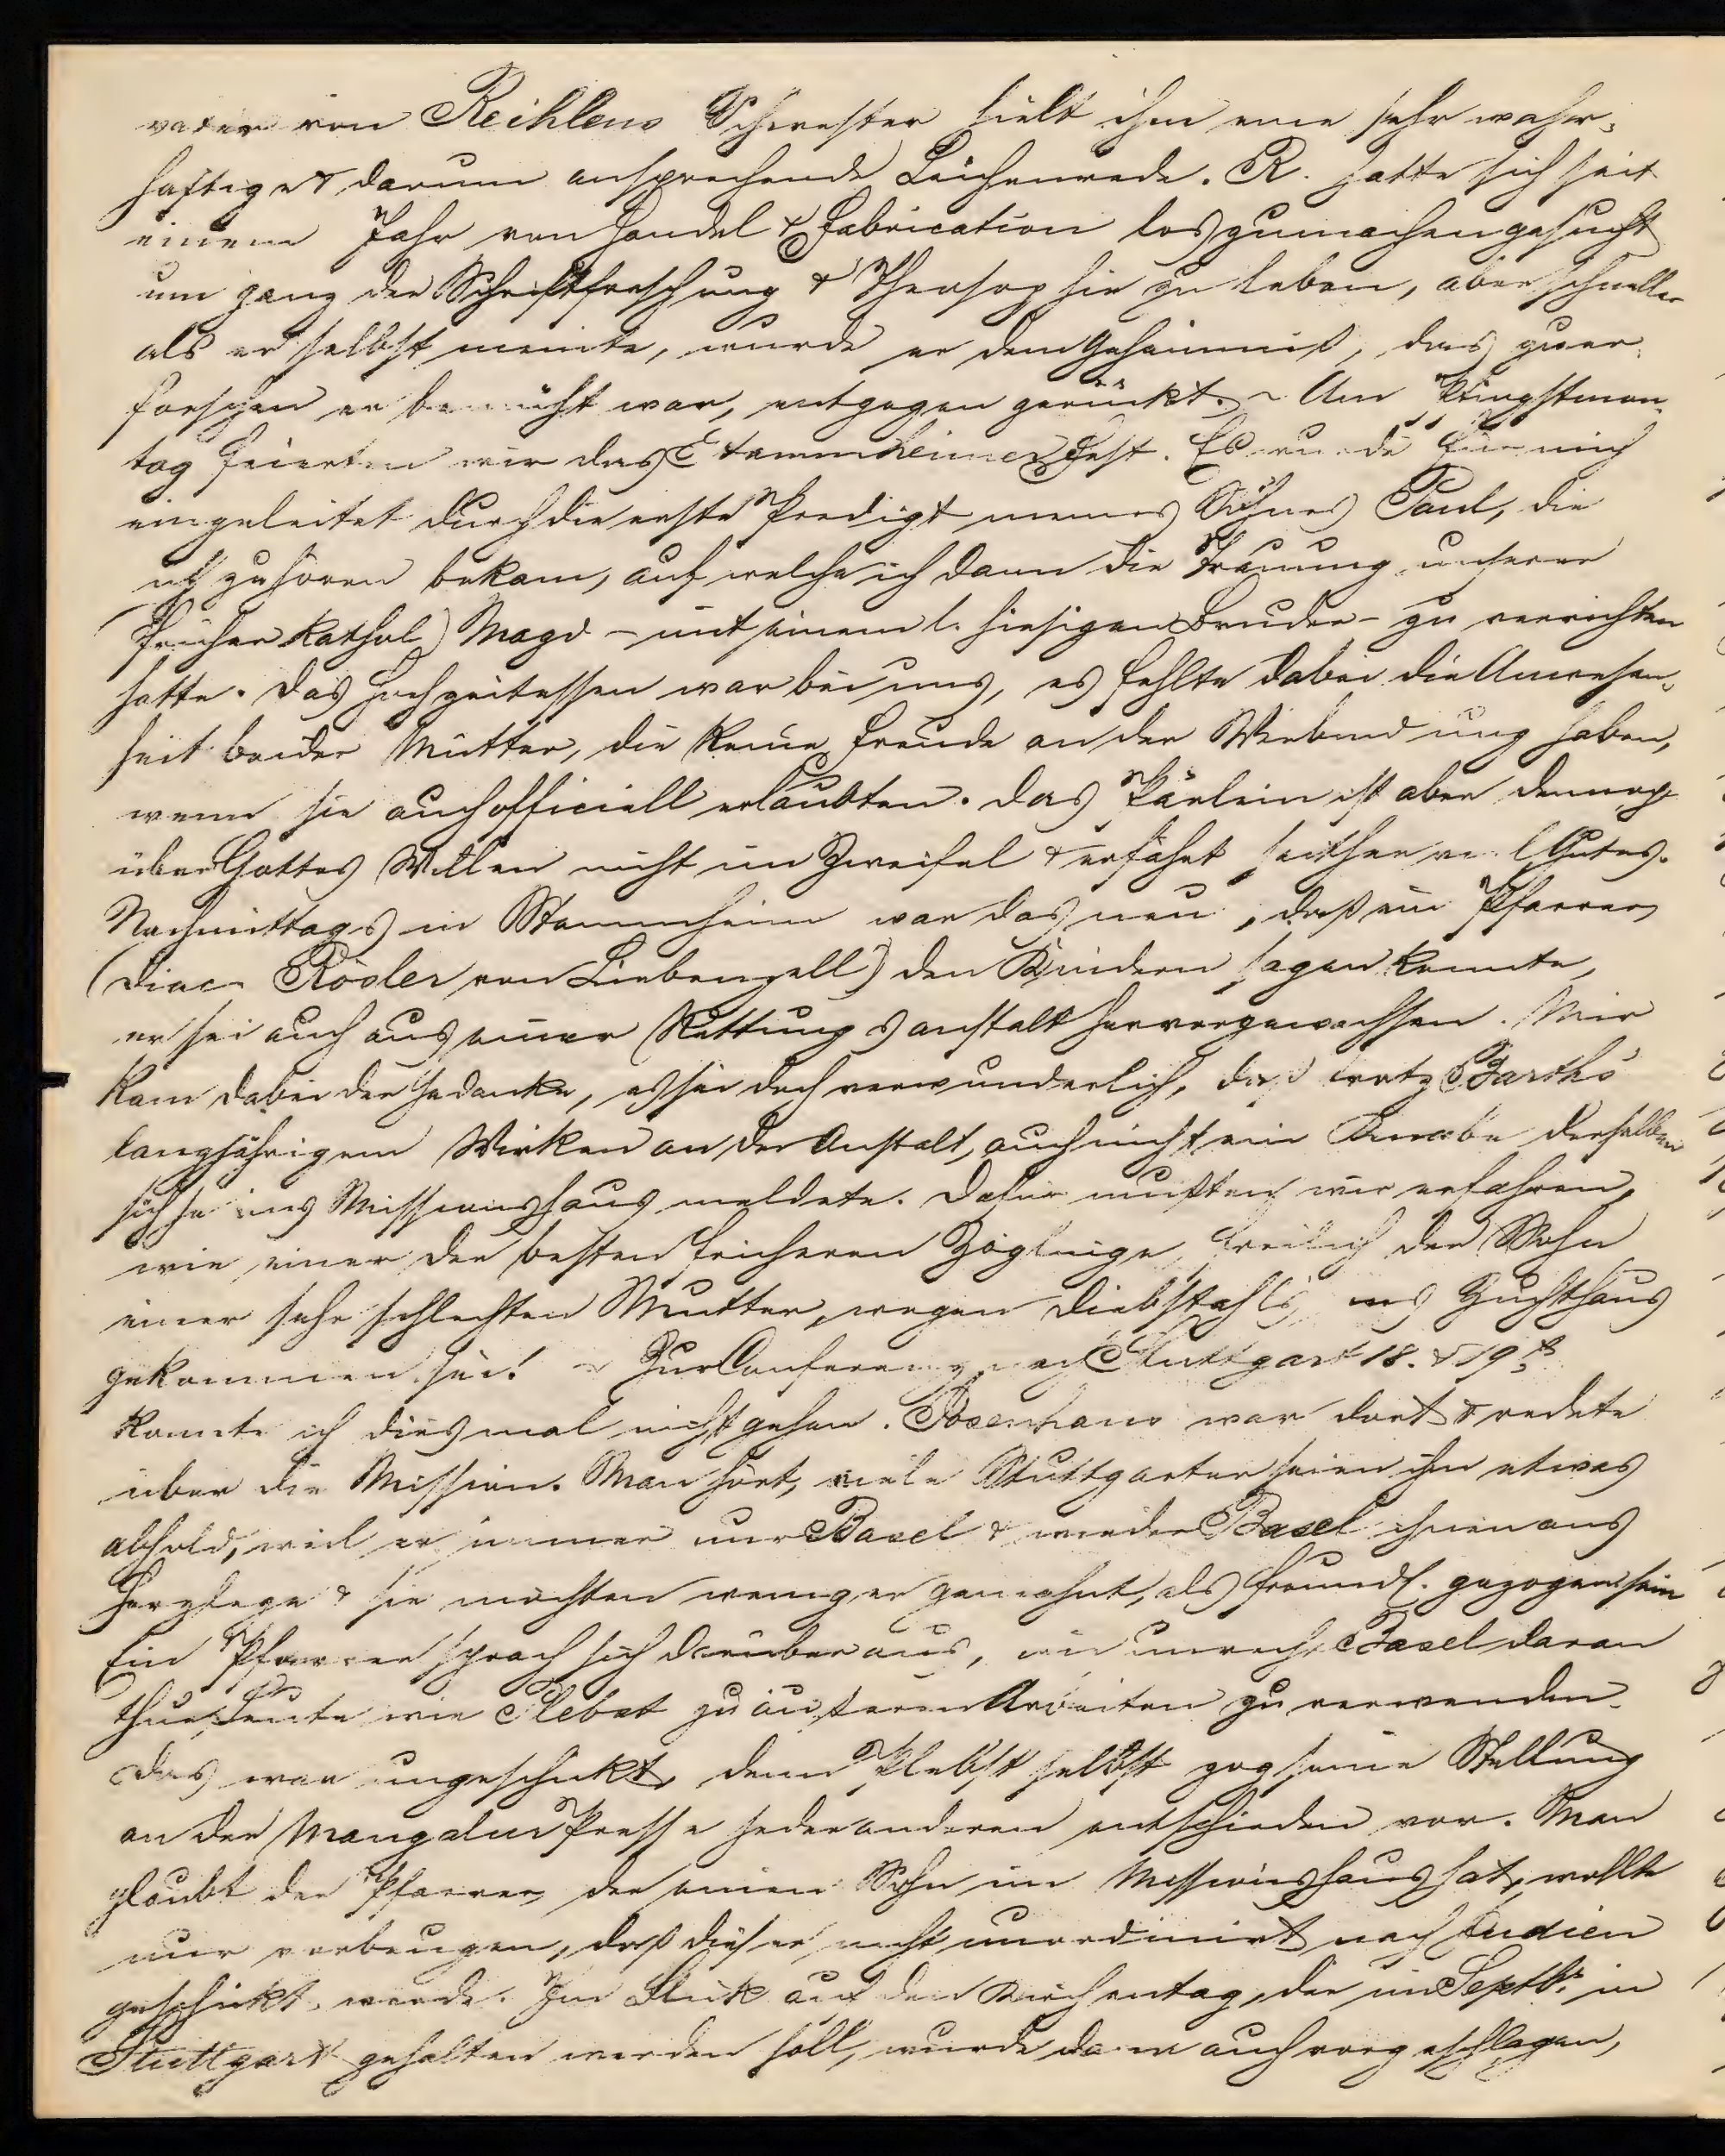 vater von Reihlens Schwester hielt ihm eine sehr wahr-
haftige & darum ansprechende Leichenrede. R. hatte sich seit
einem Jahr von Handel & Fabrication loszumachen gesucht
um ganz der Schriftforschung & Theosophie zu leben, aber schneller
als er selbst meinte, wurde er dem Geheimniß, das zu er-
forschen er bemüht war, entgegen gerückt. - Am Pfingstmon-
tag feierten wir das Stammheimer Fest. Es wurde für mich
eingeleitet durch die erste Predigt meines Sohnes Paul, die
ich zu hören bekam, auf welche ich dann die Trauung unserer
(früher kathol) Magd - mit einem l. hiesigen Bruder - zu verrichten
hatte. Das Hochzeitessen war bei uns, es fehlte dabei die Anwesen-
heit beider Mütter, die keine Freude an der Verbindung haben,
wenn sie auch officiell erlaubten. Das Pärlein ist aber dennoch
über Gottes Willen nicht im Zweifel & erfährt seither viel Gutes.
Nachmittags in Stammheim war das neu, daß ein Pfarrer
(Diac. Rösler von Liebenzell) den Kindern sagen konnte,
er sei auch aus einer Rettungsanstalt hervorgewachsen. Mir
kam dabei der Gedanke, es sei doch verwunderlich, daß trotz Barths
langjährigem Wirken an der Anstalt, auch nicht ein Knabe derselben
sich je ins Missionshaus meldete. Dafür mußten wir erfahren,
wie einer der besten früheren Zöglinge, freilich der Sohn
einer sehr schlechten Mutter, wegen Diebstahls ins Zuchthaus
gekommen sei! - Zur Conferenz nach Stuttgart 18. & 19t
konnte ich diesmal nicht gehen. Josenhans war dort & redete
über die Mission. Man hört, viele Stuttgarter seien ihm etwas
abhold, weil er immer nur Basel & wieder Basel ihnen ans
Herz lege & sie möchten weniger gemahnt, als freundl. gezogen sein
Ein Pfarrer sprach sich darüber aus, wie unrecht Basel daran
thue, Leute wie Plebst zu äußeren Arbeiten zu verwenden.
Das war ungeschickt, denn Plebst selbst zog seine Stellung
an der Mangalur Presse jeder anderen entschieden vor. Man
glaubt der Pfarrer, der einen Sohn im Missionshaus hat, wollte
nur vorbeugen, daß dieser nicht unordinirt nach Indien
geschickt werde. Im Blick auf den Kirchentag, der im Septb. in
Stuttgart gehalten werden soll, wurde dann auch vorgeschlagen,